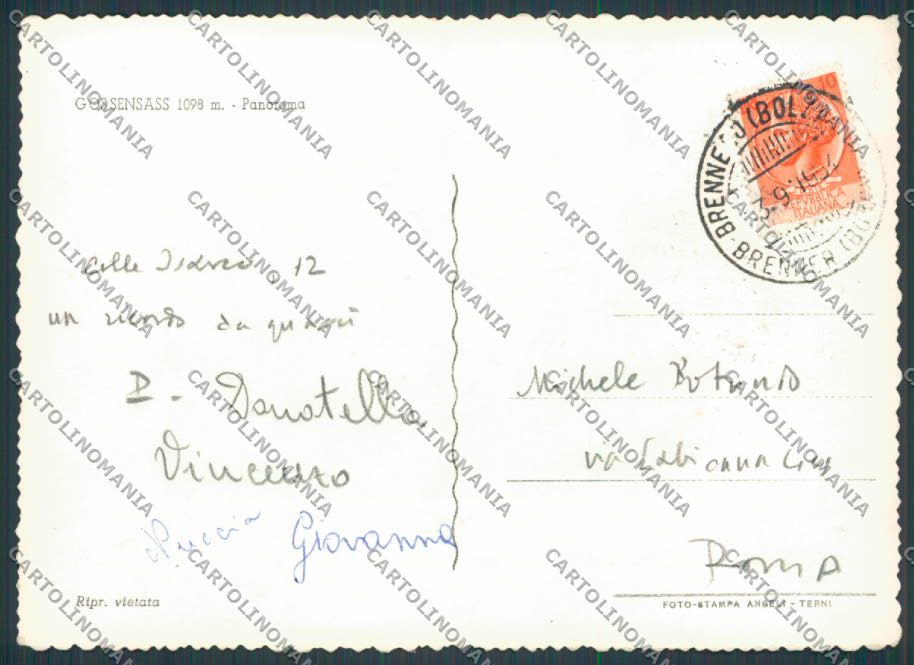 GOSSENSASS 1098 m. - Panorama
BRENNERO (BOLZANO)
10
3.9.1954
REPVBBLICA
ITALIANA
BRENNER
Colle Isarco, 12
un ricordo da
D. Donatella
Vincenzo
Puccia Giovanna
Michele Rotundo
via
Roma
Ripr. vietata
FOTO-STAMPA ANGELI - TERNI
CARTOLINOMANIA